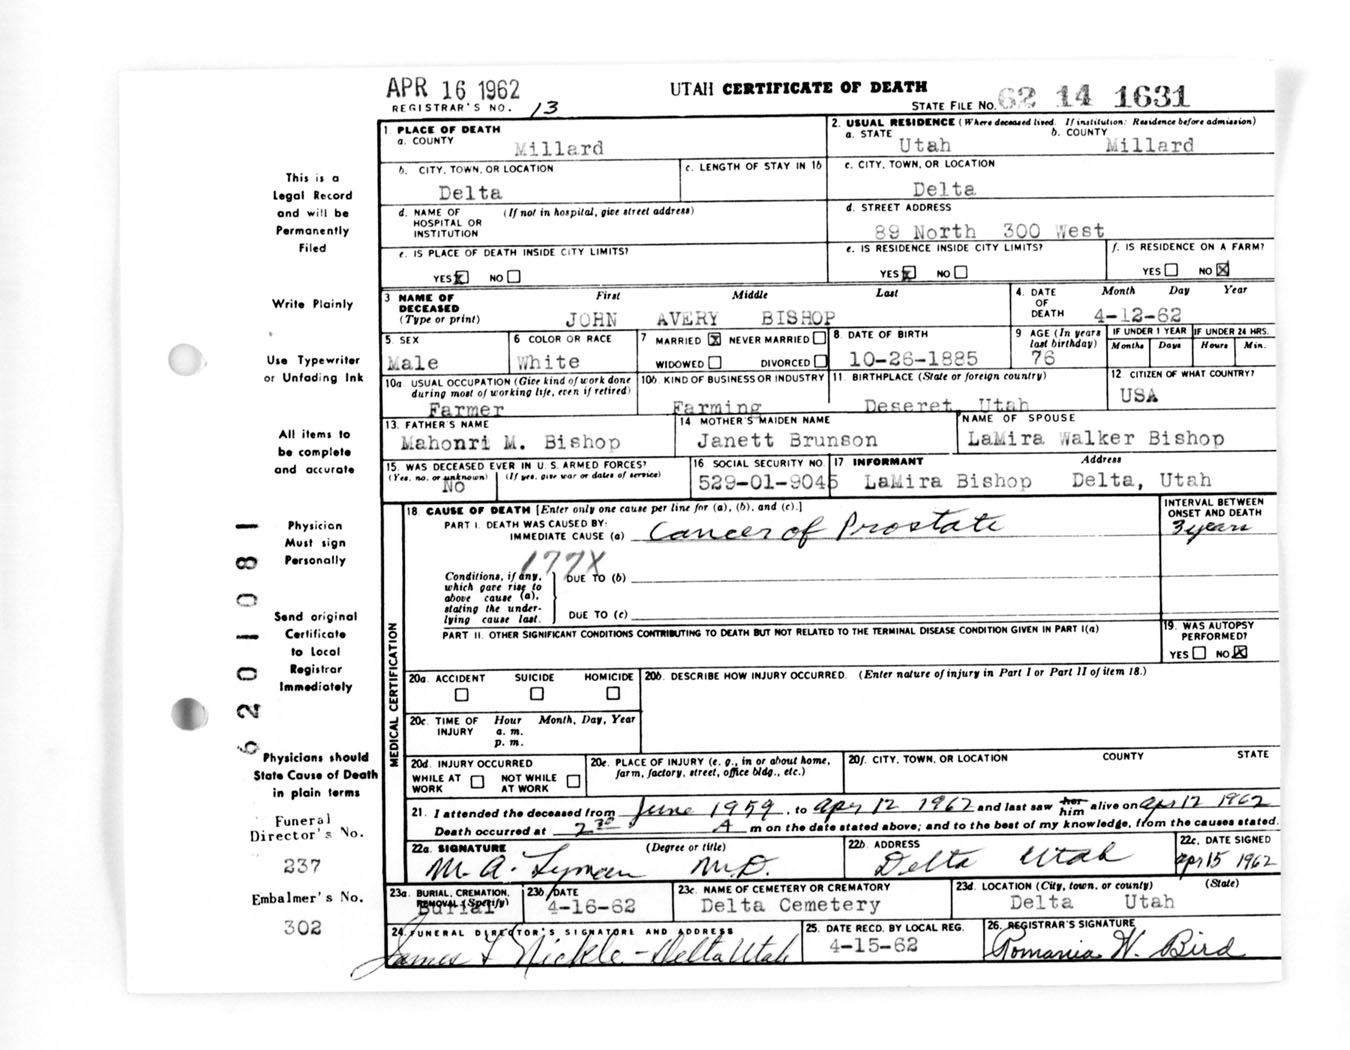 APR 16 1962
UTAH CERTIFICATE OF DEATH
REGISTRAR'S NO. 13
STATE FILE NO. 62 14 1631
1 PLACE OF DEATH
a. COUNTY
Millard
2. USUAL RESIDENCE (Where deceased lived. If institution: Residence before admission)
a. STATE Utah
b. COUNTY Millard
b. CITY, TOWN, OR LOCATION
Delta
c. LENGTH OF STAY IN 1b
c. CITY, TOWN, OR LOCATION
Delta
d. NAME OF HOSPITAL OR INSTITUTION (If not in hospital, give street address)
d. STREET ADDRESS
89 North 300 West
e. IS PLACE OF DEATH INSIDE CITY LIMITS?
YES X NO
e. IS RESIDENCE INSIDE CITY LIMITS?
YES X NO
f. IS RESIDENCE ON A FARM?
YES NO X
3 NAME OF DECEASED (Type or print)
First Middle Last
JOHN AVERY BISHOP
4. DATE OF DEATH
Month Day Year
4-12-62
5. SEX
Male
6 COLOR OR RACE
White
7 MARRIED X NEVER MARRIED
WIDOWED DIVORCED
8 DATE OF BIRTH
10-26-1885
9 AGE (In years last birthday)
76
IF UNDER 1 YEAR
Months Days
IF UNDER 24 HRS.
Hours Min.
10a. USUAL OCCUPATION (Give kind of work done during most of working life, even if retired)
Farmer
10b. KIND OF BUSINESS OR INDUSTRY
Farming
11. BIRTHPLACE (State or foreign country)
Deseret, Utah
12. CITIZEN OF WHAT COUNTRY?
USA
13. FATHER'S NAME
Mahonri M. Bishop
14 MOTHER'S MAIDEN NAME
Janett Brunson
NAME OF SPOUSE
LaMira Walker Bishop
15. WAS DECEASED EVER IN U. S. ARMED FORCES?
(Yes, no, or unknown) (If yes, give war or dates of service)
No
16 SOCIAL SECURITY NO.
529-01-9045
17 INFORMANT Address
LaMira Bishop Delta, Utah
18 CAUSE OF DEATH [Enter only one cause per line for (a), (b), and (c).]
PART I. DEATH WAS CAUSED BY:
IMMEDIATE CAUSE (a) Cancer of Prostate
INTERVAL BETWEEN ONSET AND DEATH
3 years
177X
Conditions, if any, which gave rise to above cause (a), stating the underlying cause last.
DUE TO (b)
DUE TO (c)
PART II. OTHER SIGNIFICANT CONDITIONS CONTRIBUTING TO DEATH BUT NOT RELATED TO THE TERMINAL DISEASE CONDITION GIVEN IN PART I(a)
19. WAS AUTOPSY PERFORMED?
YES NO X
MEDICAL CERTIFICATION
20a. ACCIDENT SUICIDE HOMICIDE
20b. DESCRIBE HOW INJURY OCCURRED. (Enter nature of injury in Part I or Part II of item 18.)
20c. TIME OF INJURY Hour Month, Day, Year
a. m.
p. m.
20d. INJURY OCCURRED
WHILE AT WORK NOT WHILE AT WORK
20e. PLACE OF INJURY (e. g., in or about home, farm, factory, street, office bldg., etc.)
20f. CITY, TOWN, OR LOCATION COUNTY STATE
21. I attended the deceased from June 1959, to Apr 12 1962 and last saw her him alive on Apr 12 1962
Death occurred at 2 30 A m on the date stated above; and to the best of my knowledge, from the causes stated.
22a. SIGNATURE (Degree or title)
M. A. Lyman M.D.
22b. ADDRESS
Delta Utah
22c. DATE SIGNED
Apr 15 1962
23a. BURIAL, CREMATION, REMOVAL (Specify)
Burial
23b. DATE
4-16-62
23c. NAME OF CEMETERY OR CREMATORY
Delta Cemetery
23d. LOCATION (City, town, or county) (State)
Delta Utah
24. FUNERAL DIRECTOR'S SIGNATURE AND ADDRESS
James F Nickle - Delta Utah
25. DATE RECD. BY LOCAL REG.
4-15-62
26. REGISTRAR'S SIGNATURE
Romania W. Bird
This is a
Legal Record
and will be
Permanently
Filed
Write Plainly
Use Typewriter
or Unfading Ink
All items to
be complete
and accurate
Physician
Must sign
Personally
Send original
Certificate
to Local
Registrar
Immediately
Physicians should
State Cause of Death
in plain terms
Funeral
Director's No.
237
Embalmer's No.
302
6201081